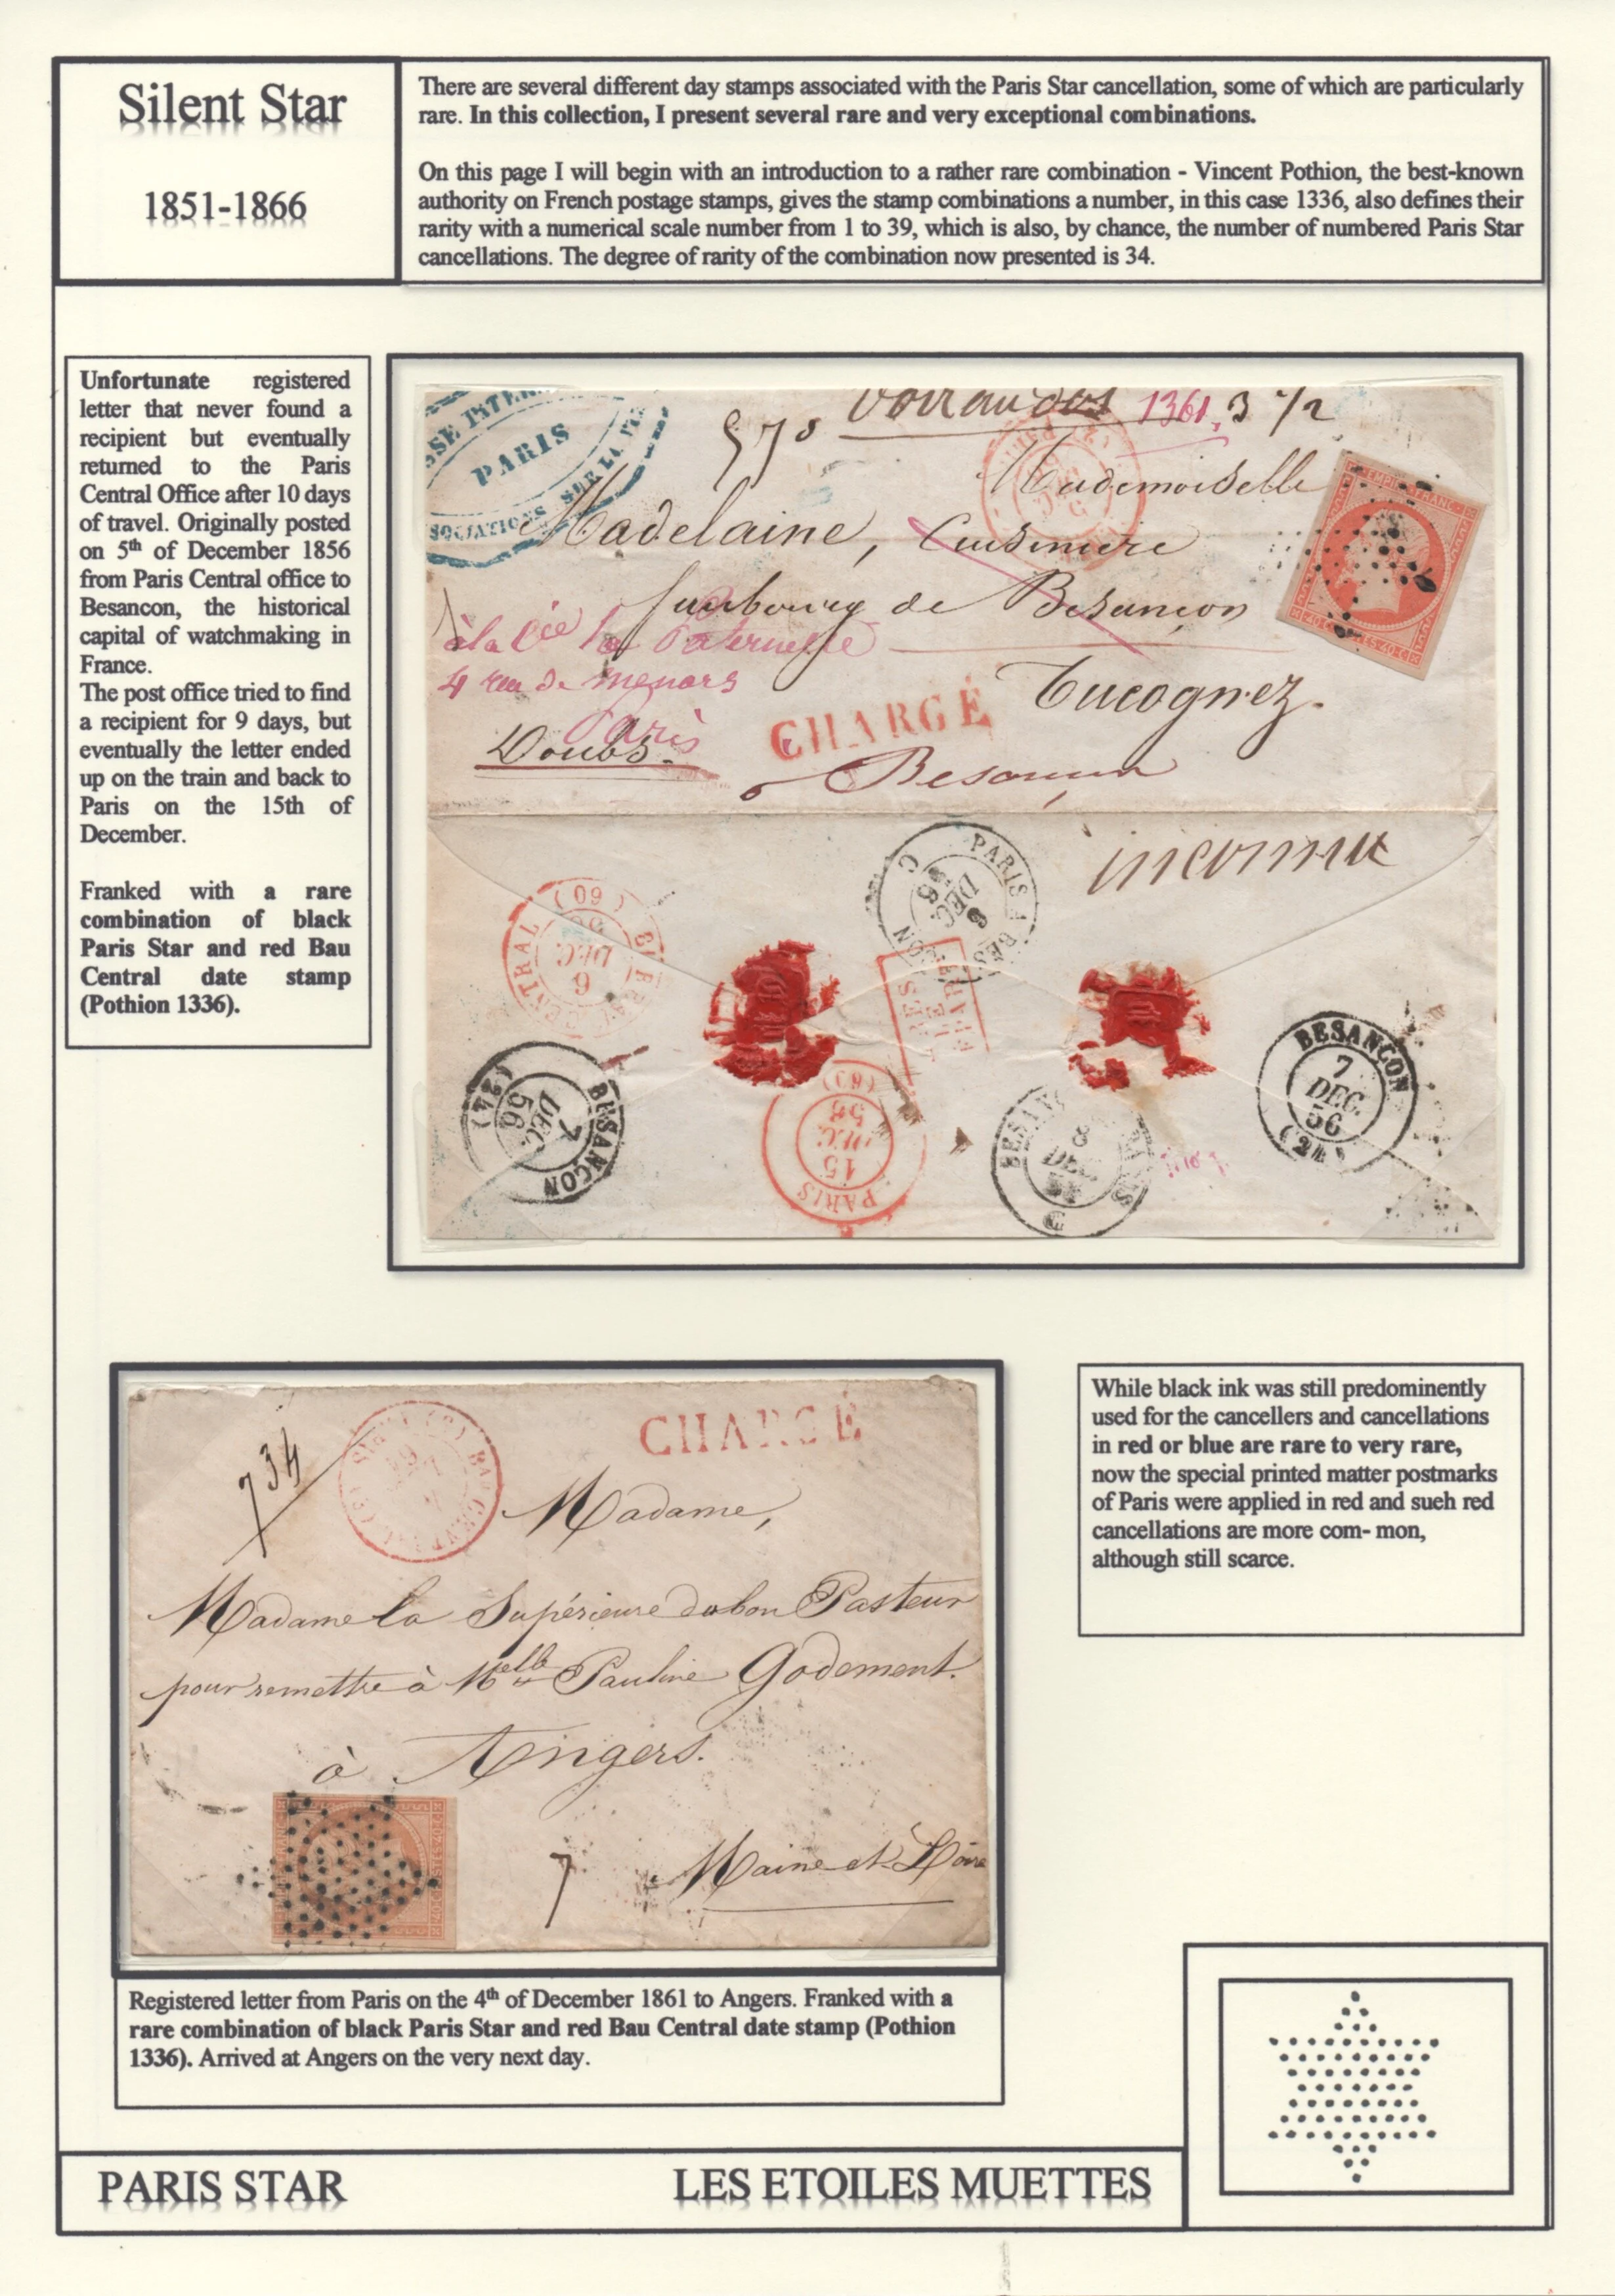 Silent Star
1851-1866
There are several different day stamps associated with the Paris Star cancellation, some of which are particularly
rare. In this collection, I present several rare and very exceptional combinations.
On this page I will begin with an introduction to a rather rare combination - Vincent Pothion, the best-known
authority on French postage stamps, gives the stamp combinations a number, in this case 1336, also defines their
rarity with a numerical scale number from 1 to 39, which is also, by chance, the number of numbered Paris Star
cancellations. The degree of rarity of the combination now presented is 34.
Unfortunate registered
letter that never found a
recipient but eventually
returned to the Paris
Central Office after 10 days
of travel. Originally posted
on 5th of December 1856
from Paris Central office to
Besancon, the historical
capital of watchmaking in
France.
The post office tried to find
a recipient for 9 days, but
eventually the letter ended
up on the train and back to
Paris on the 15th of
December.
Franked with a rare
combination of black
Paris Star and red Bau
Central date stamp
(Pothion 1336).
PARIS
SUR LA VIE
1361. 3 1/2
Mademoiselle
Madelaine, Cuisiniere
faubourg de Besançon
à la Cie la Paternelle
4 rue de menars
Paris
CHARGÉ
Doubs.
Besançon
inconnu
PARIS A BESANCON
8 DEC. 56
(60)
6 DEC. 56
BESANCON
7 DEC. 56
(24)
PARIS
15 DEC. 56
(60)
BESANCON
7 DEC. 56
734
CHARGÉ
Madame,
Madame la Supérieure du bon Pasteur
pour remettre à Melle Pauline Godement.
à Angers.
7 Maine et Loire
While black ink was still predominently
used for the cancellers and cancellations
in red or blue are rare to very rare,
now the special printed matter postmarks
of Paris were applied in red and sueh red
cancellations are more com- mon,
although still scarce.
Registered letter from Paris on the 4th of December 1861 to Angers. Franked with a
rare combination of black Paris Star and red Bau Central date stamp (Pothion
1336). Arrived at Angers on the very next day.
PARIS STAR LES ETOILES MUETTES